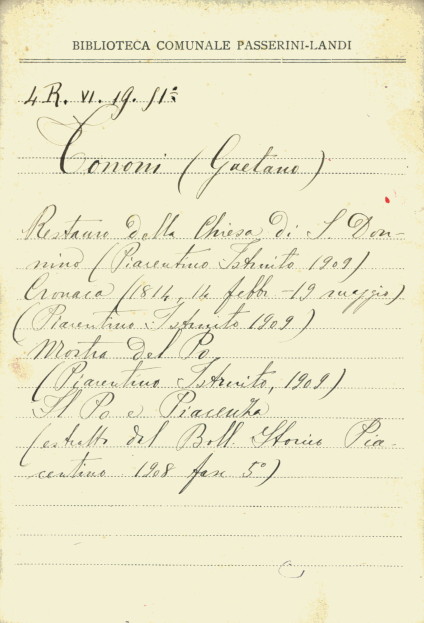 BIBLIOTECA COMUNALE PASSERINI-LANDI
4 R. VI. 19. 51ª
Tononi (Gaetano)
Restauro della Chiesa di S. Don-
nino (Piacentino Istruito 1909)
Cronaca (1814, 14 febbr - 19 maggio)
(Piacentino Istruito 1909)
Mostra del Po
(Piacentino Istruito, 1909)
Il Po e Piacenza
(estratto dal Boll. Storico Pia-
centino 1908 fasc 5º)